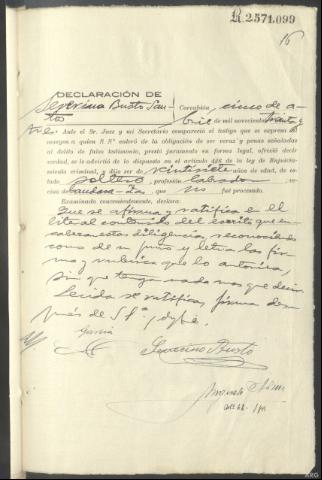 R.2571.099
16
DECLARACIÓN DE
Severino Busto San-
tos
Corcubión, cinco de a-
bril de mil novecientos treinta y
Ante el Sr. Juez y mi Secretario compareció el testigo que se expresa al
margen a quien S. Sª enteró de la obligación de ser veraz y penas señaladas
al delito de falso testimonio, prestó juramento en forma legal, ofreció decir
verdad, se le advirtió de lo dispuesto en el artículo 446 de la ley de Enjuicia-
miento criminal, y dijo ser de veintisiete años de edad, de es-
tado soltero, profesión labrador, ve-
cino de que no fué procesado.
Examinado convenientemente, dice:
Que se afirma y ratifica en el
literal contenido del escrito que en-
cabeza estas diligencias, reconociendo
como de su puño y letra las fir-
ma y rúbrica que lo autoriza,
sin que tenga nada mas que decir
Leida se ratifica, firma des-
pués de Sª Sª, doy fe.
García
Severino Busto
ARG